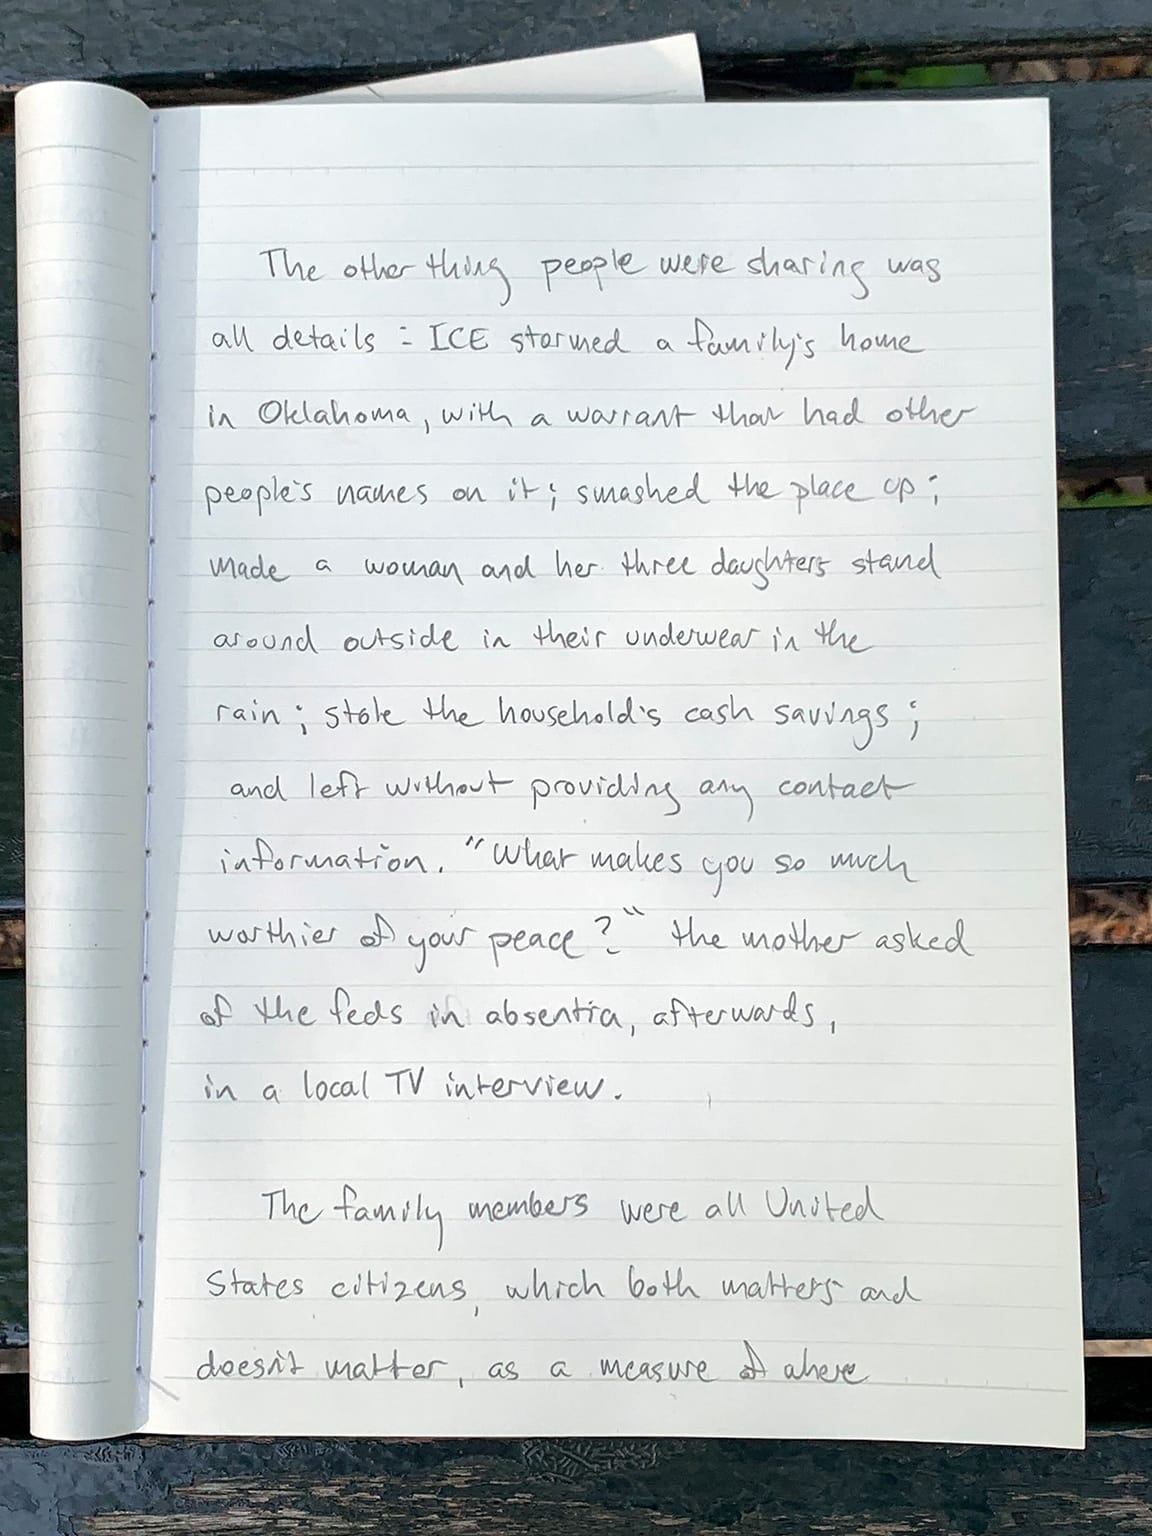 The other thing people were sharing was
all details : ICE stormed a family's home
in Oklahoma, with a warrant that had other
people's names on it; smashed the place up;
made a woman and her three daughters stand
around outside in their underwear in the
rain; stole the household's cash savings;
and left without providing any contact
information. "What makes you so much
worthier of your peace?" the mother asked
of the feds in absentia, afterwards,
in a local TV interview.
The family members were all United
States citizens, which both matters and
doesn't matter, as a measure of where